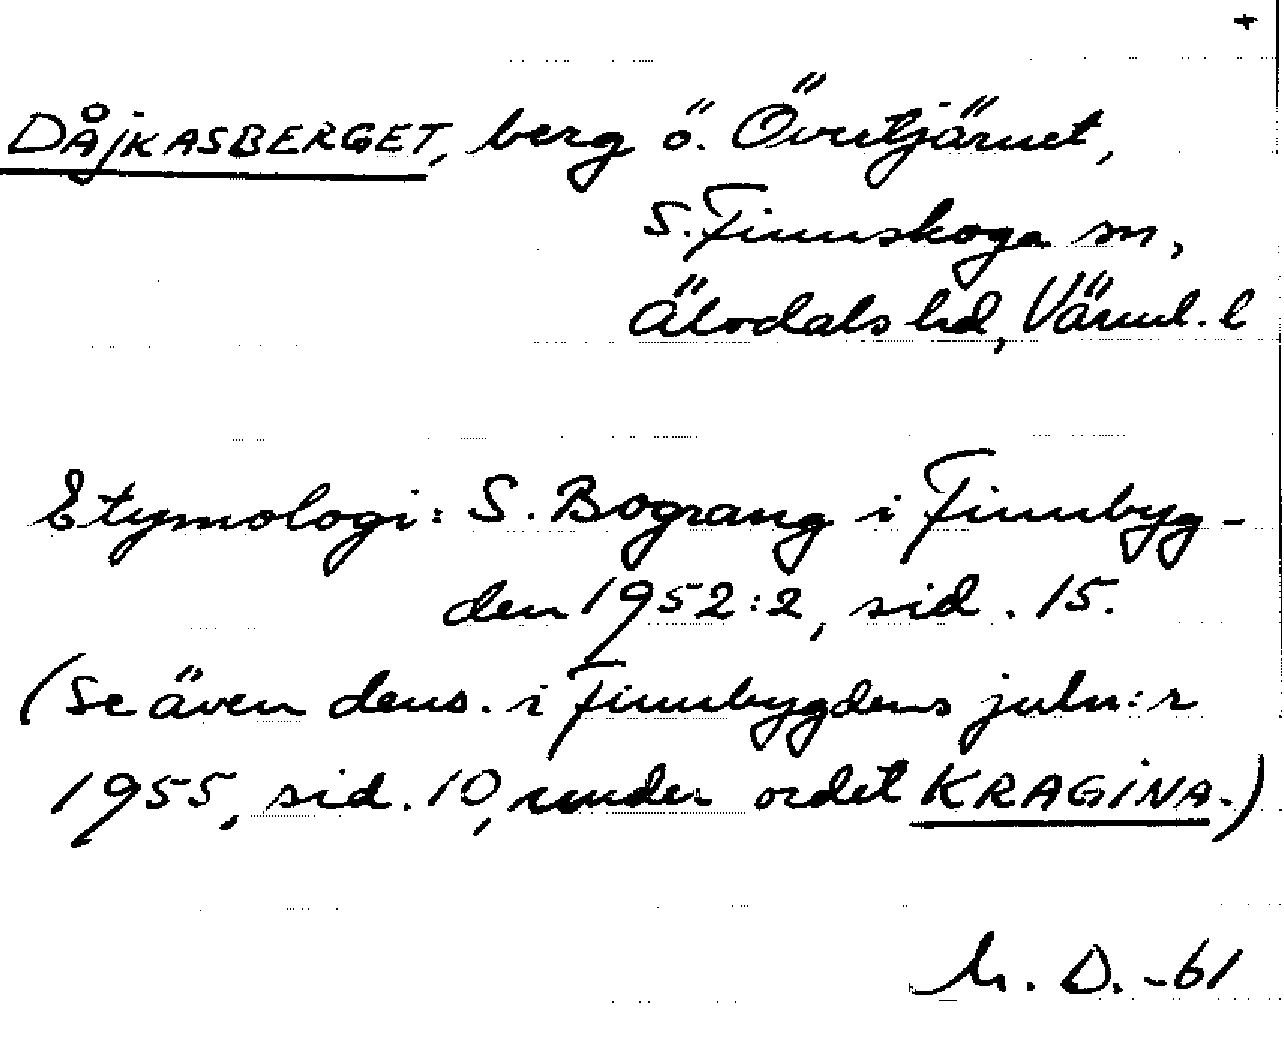 DÅJKASBERGET, berg ö. Övertjärnet,
S. Finnskoga sn,
Älvdals hd, Värml. l
Etymologi: S. Bograng i Finnbyg-
den 1952:2, sid. 15.
(Se även dens. i Finnbygdens juln:r
1955, sid. 10, under ordet KRAGINA.)
D. -61